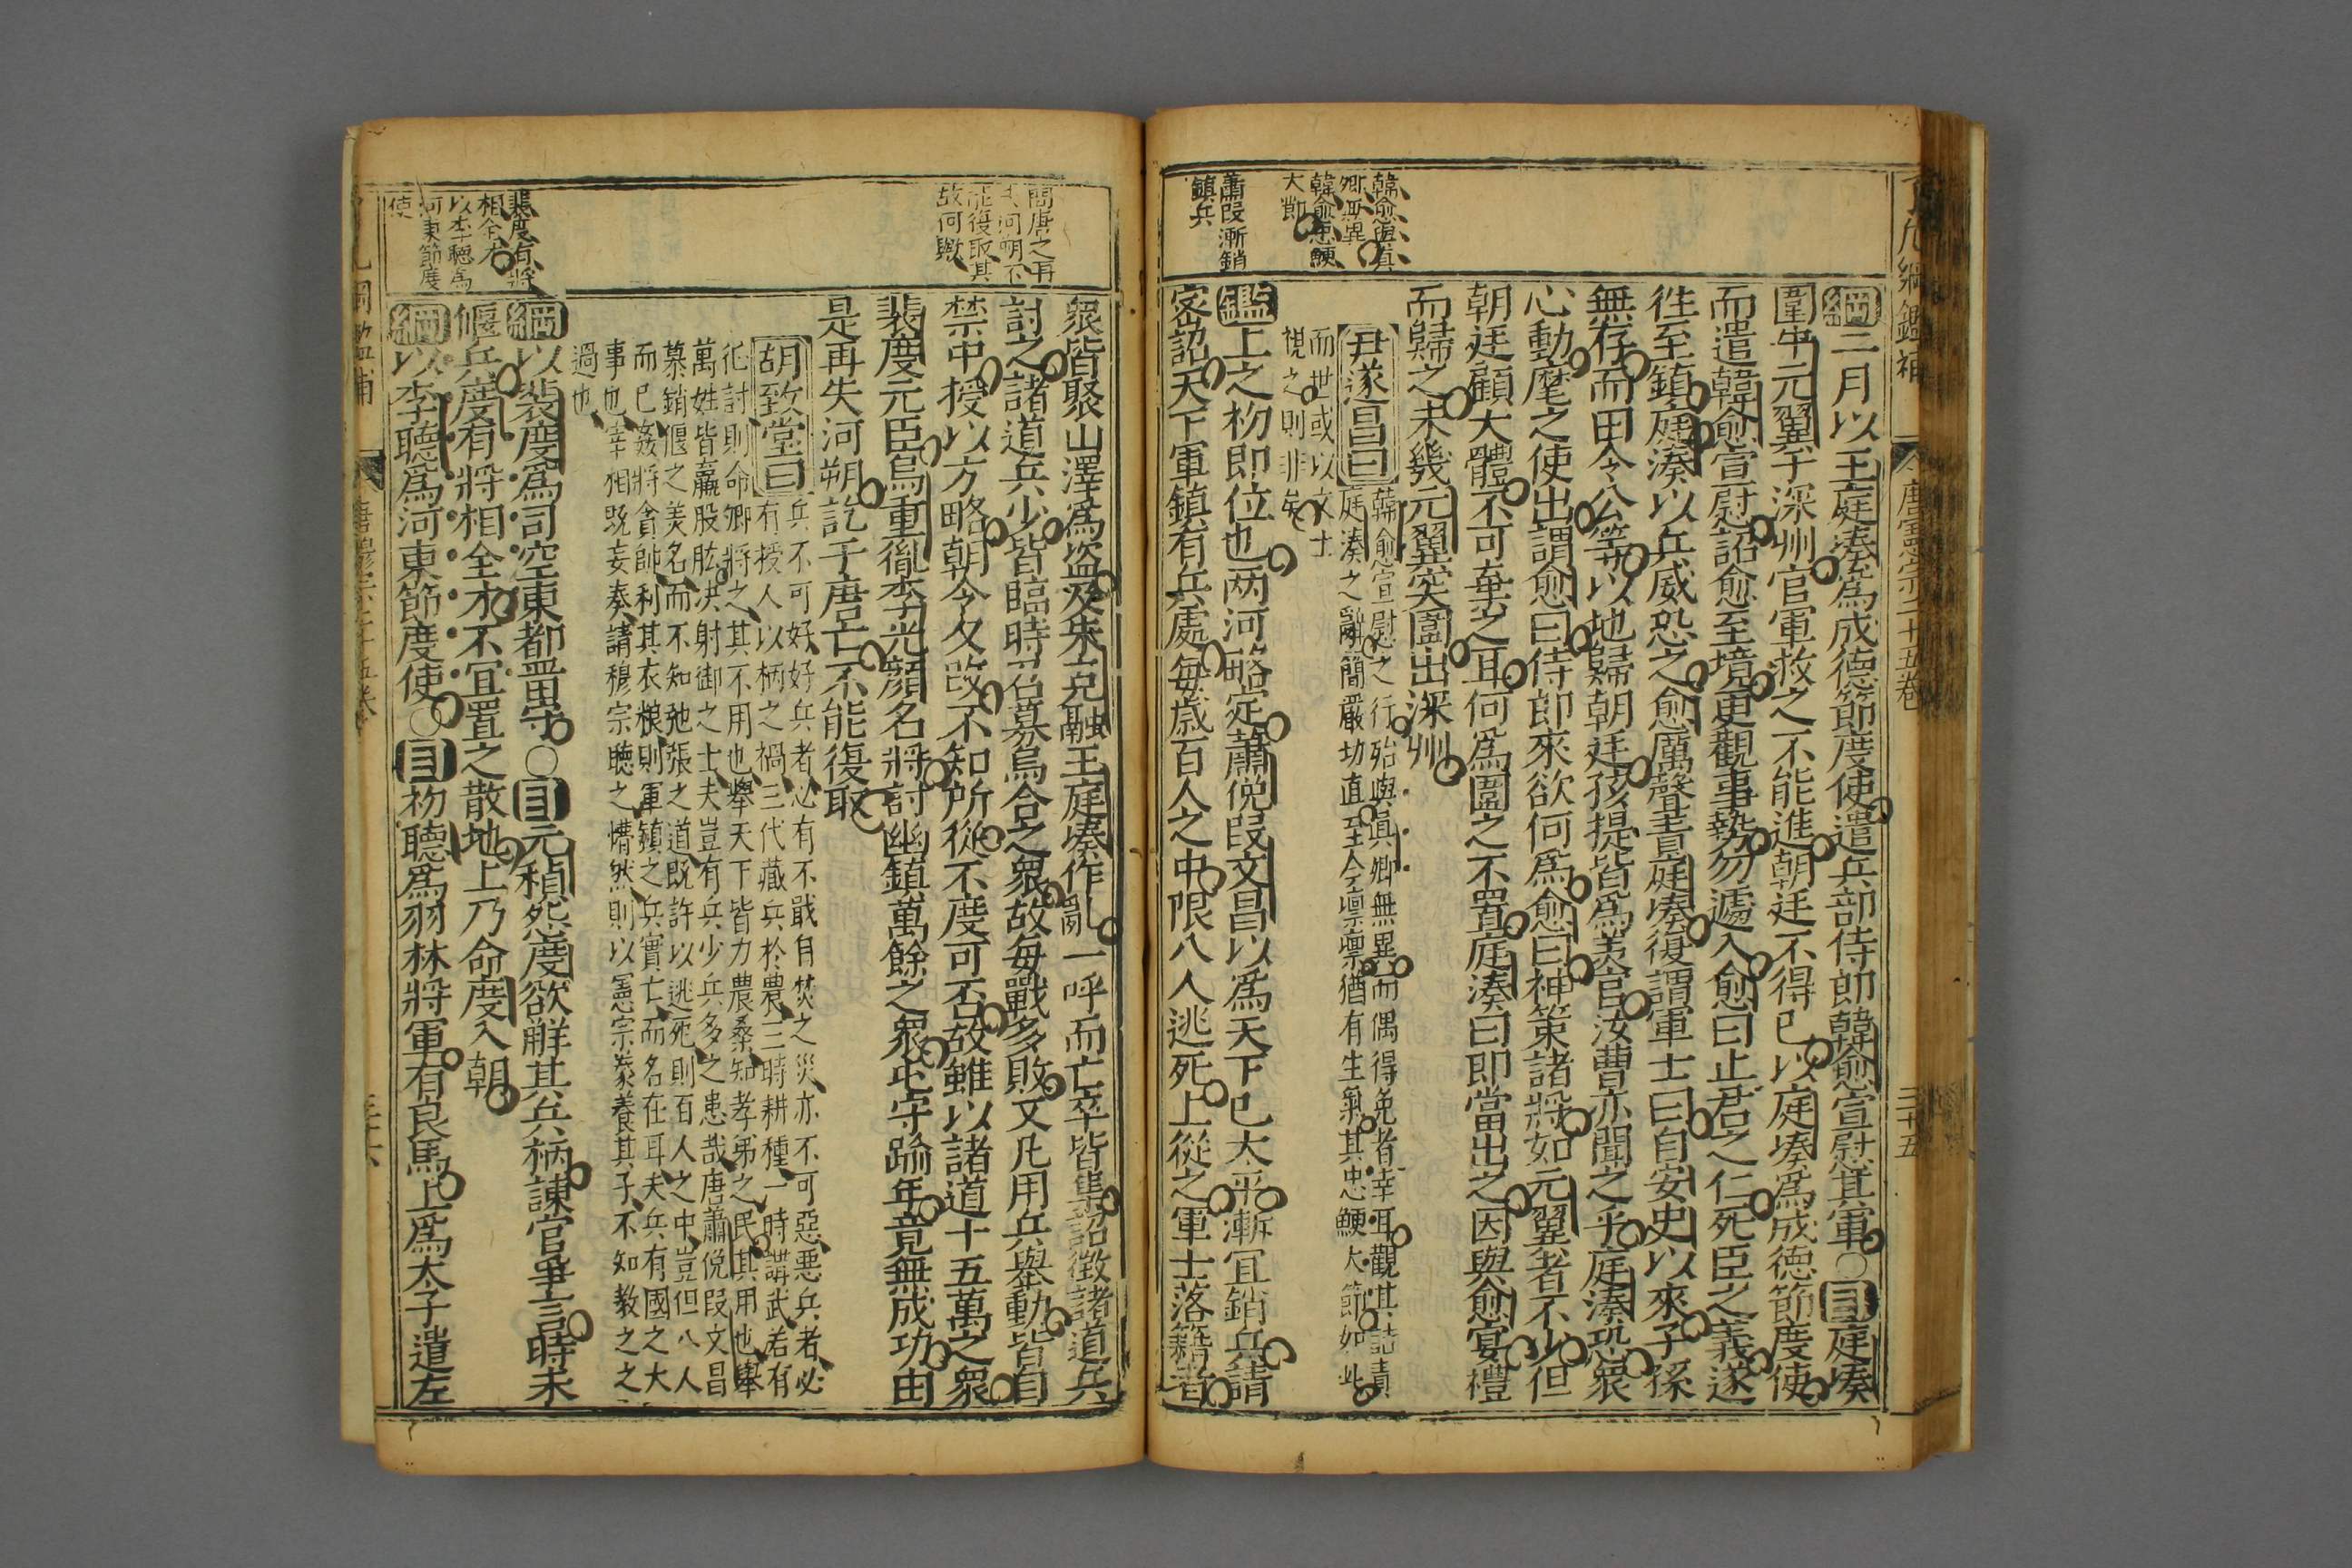 韓愈與真
卿無異
韓愈忠鯁
大節
蕭段漸銷
鎮兵
綱二月以王庭湊為成德節度使遣兵部侍郎韓愈宣慰其軍○目庭湊
圍牛元翼于深州官軍救之不能進朝廷不得已以庭湊爲成德節度使
而遣韓愈宣慰詔愈至境更觀事勢勿遽入愈曰止君之仁死臣之義遂
徃至鎮庭湊以兵威恐之愈厲聲責庭湊復謂軍士曰自安史以來子孫
無存而田令公等以地歸朝廷孩提皆爲美官汝曹亦聞之乎庭湊恐衆
心動麾之使出謂愈曰侍郎來欲何爲愈曰神策諸將如元翼者不少但
朝廷顧大體不可棄之耳何爲圍之不置庭湊曰即當出之因與愈宴禮
而歸之未幾元翼突圍出深州
尹遂昌曰韓愈宣慰之行殆與眞卿無異而偶得免者幸耳觀其詰責
庭湊之辭簡嚴切直至今凛凛猶有生氣其忠鯁大節如此
而世或以文士
視之則非矣
鑑上之初即位也两河略定蕭俛段文昌以爲天下已太平漸宜銷兵請
宻詔天下軍鎮有兵處每歲百人之中限八人逃死上從之軍士落籍者
衆皆聚山澤爲盗及朱克融王庭湊作亂一呼而亡卒皆集詔徵諸道兵
討之諸道兵少皆臨時召募烏合之衆故每戰多敗又凡用兵舉動皆自
禁中授以方略朝令夕改不知所從不度可否故雖以諸道十五萬之衆
裴度元臣烏重胤李光顔名將討幽鎮萬餘之衆屯守踰年竟無成功由
是再失河朔訖于唐亡不能復取
胡致堂曰兵不可好好兵者必有不戢自焚之災亦不可惡惡兵者必
有授人以柄之禍三代藏兵於農三時耕種一時講武若有
征討則命卿將之其不用也舉天下皆力農桑知孝弟之民其用也舉
萬姓皆羸股肱决射御之士夫豈有兵少兵多之患哉唐蕭俛段文昌
慕銷偃之美名而不知弛張之道既許以逃死則百人之中豈但八人
而已姦將貪帥利其衣粮則軍鎮之兵實亡而名在耳夫兵有國之大
事也宰相既妄奏請穆宗聽之懵然則以憲宗豢養其子不知教之之
過也
綱以裴度爲司空東都畱守○目元稹怨度欲解其兵柄諫官爭言時未
偃兵度有將相全才不宜置之散地上乃命度入朝
綱以李聽爲河東節度使○目初聽爲羽林將軍有良馬上爲太子遣左
問唐之再
失河朔不
能復取其
故何歟
裴度有將
相全才
以李聽爲
河東節度
使